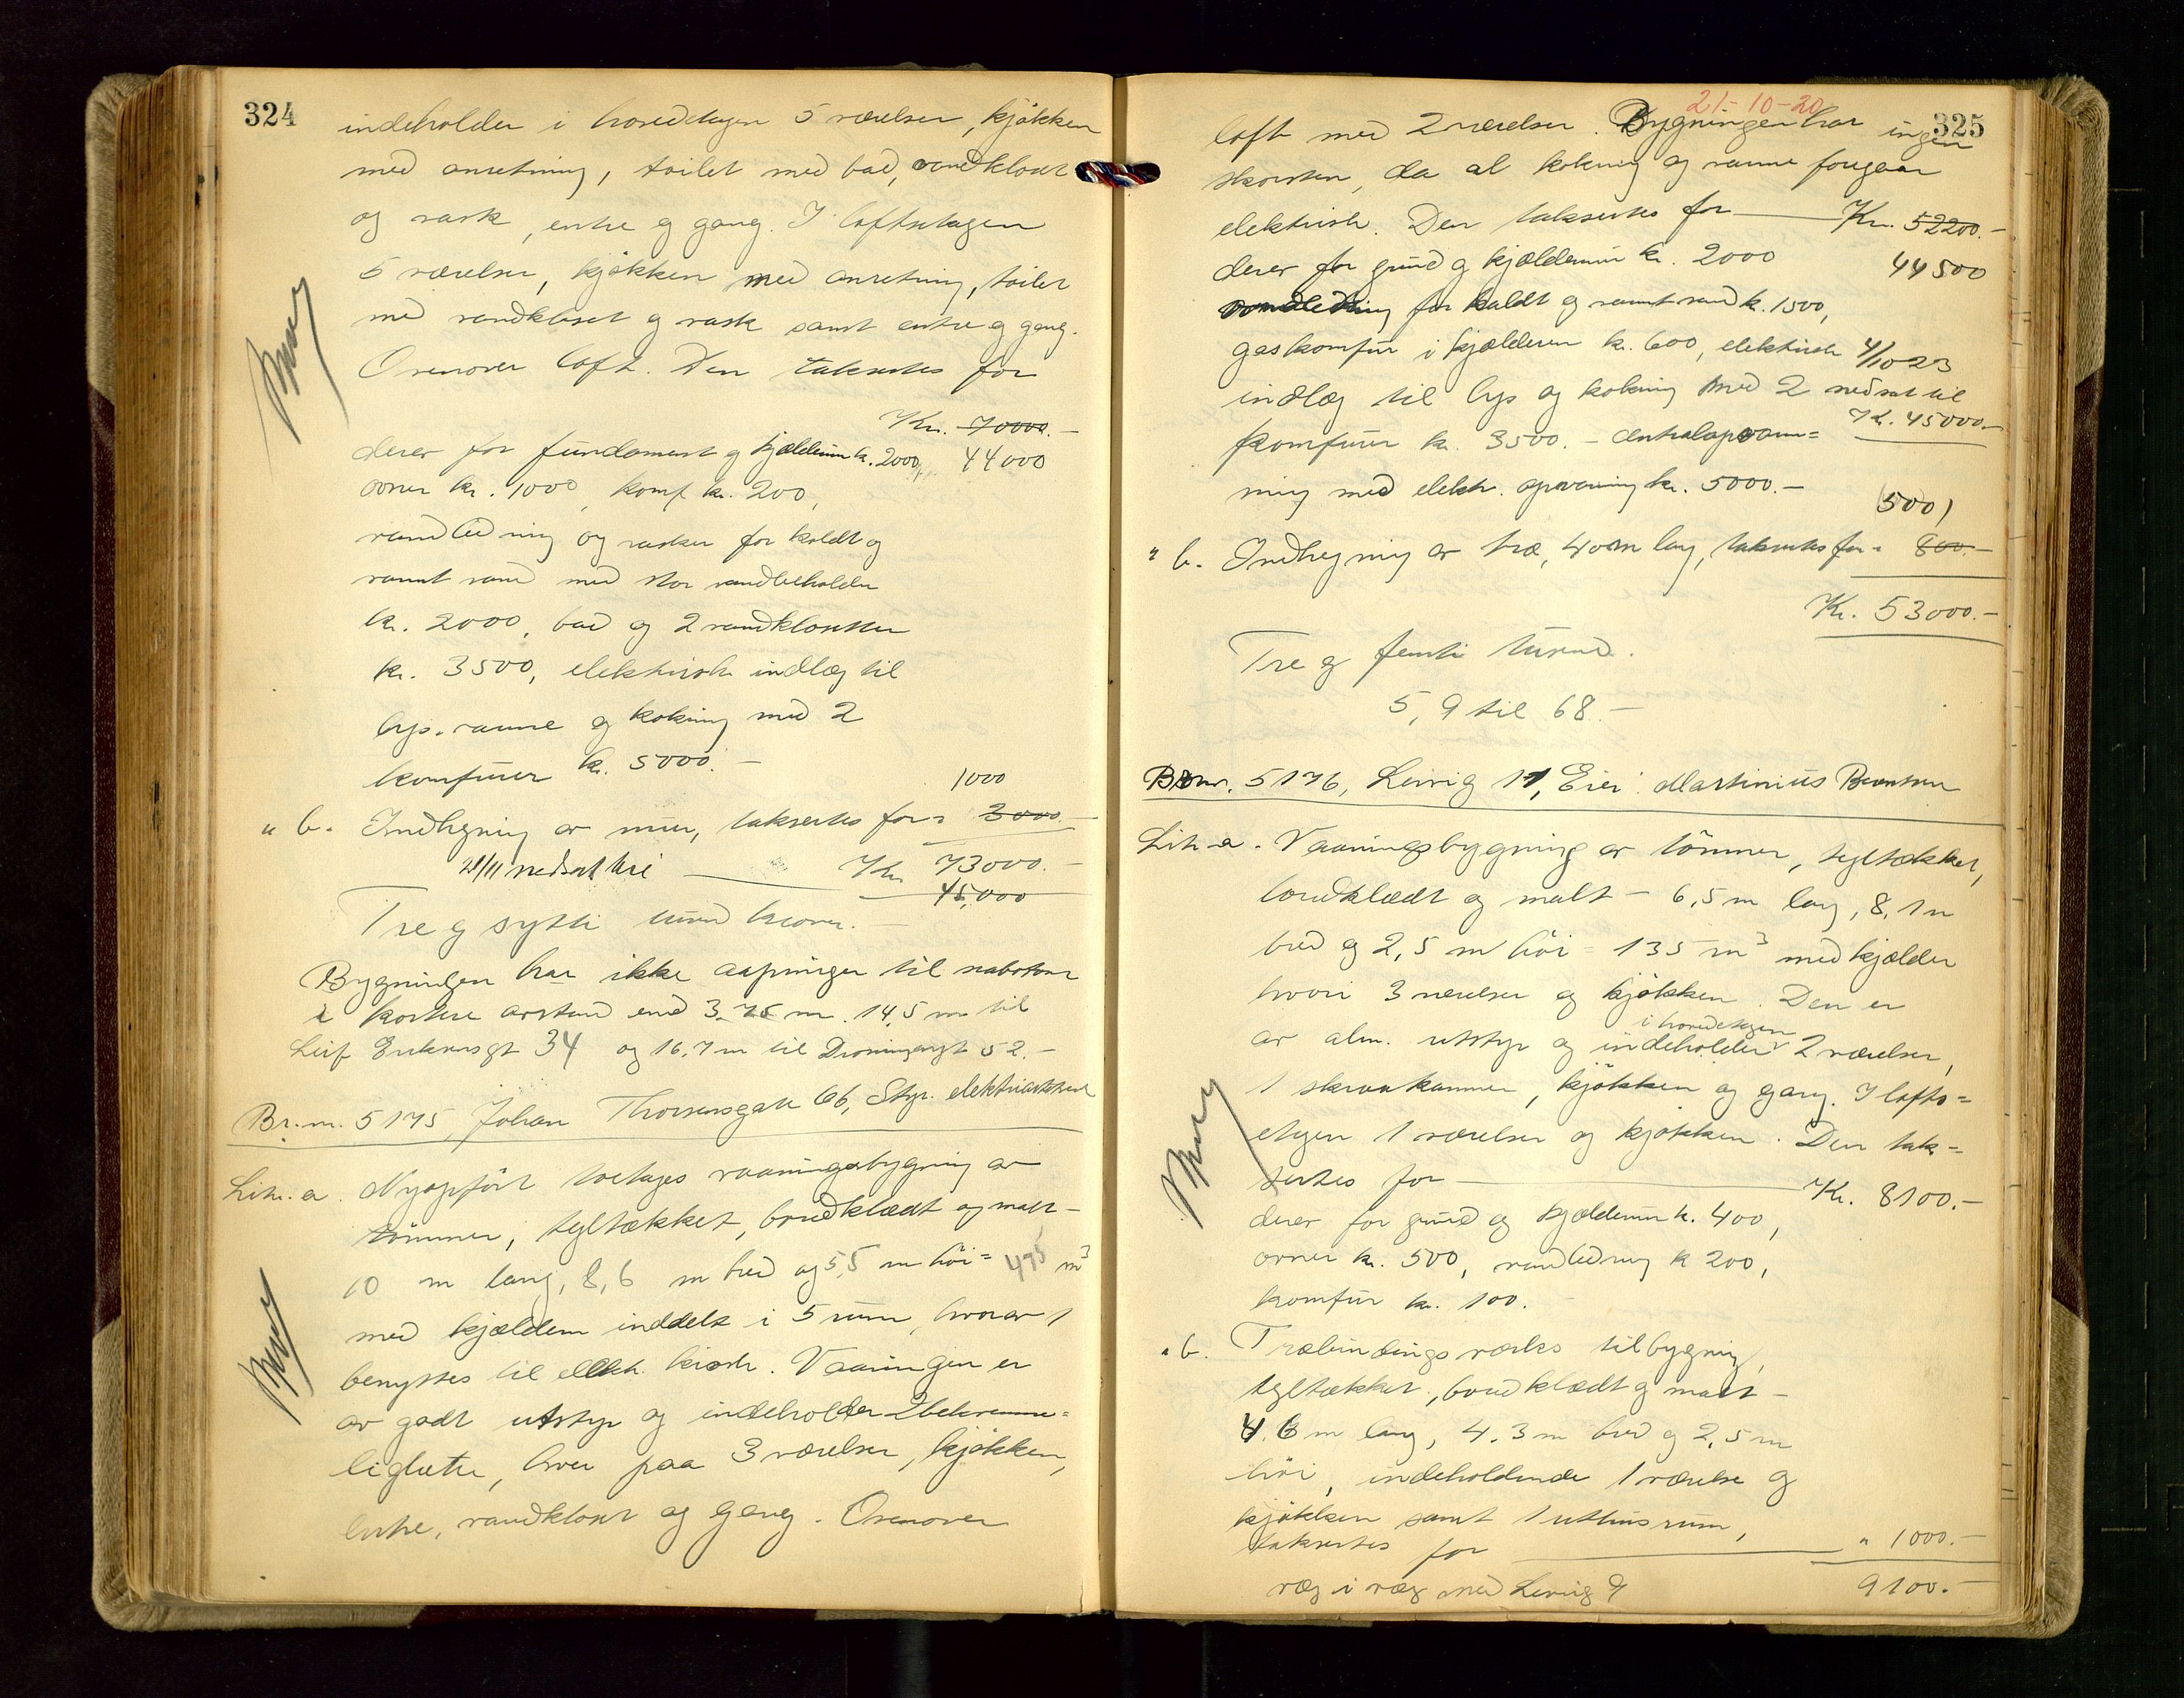 324
indeholder i hovedetagen 5 værelser, kjøkken
med anretning, toilet med bad, vandkloset
og vask, entre og gang. I loftsetagen
5 værelser, kjøkken med anretning, toilet
med vandkloset og vask samt entre og gang.
Ovenover loft. Den taksertes for
Kr. 70000.-
derav for fundament og kjælderrum kr. 2000, 44000
ovner kr. 1000, komf kr. 200,
vandledning og vasker for koldt og
varmt vand med stor vandbeholder
kr. 2000, bad og 2 vandklosetter
kr. 3500, elektrisk indlæg til
lys, varme og kokning med 2
komfurer kr. 5000.-
1000
" b. Indhegning av mur, taksertes for " 3000.-
21/11 nedsat til Kr. 73000.-
45,000
Tre og sytti tusend kroner.-
Bygningen har ikke aapninger til nabotomt
i kortere avstand end 3,75 m. 14,5 m til
Leif Eriksonsgt 34 og 16,7 m til Dronningensgt 52.-
Br. nr. 5175, Johan Thorsensgate 66, Styr. elektricitetsverk
Litr. a. Nyopført toetages vaaningsbygning av
tømmer, tegltækket, bordklædt og malt -
10 m lang, 8,6 m bred og 5,5 m høi = 475 m³
med kjældere inddelt i 5 rum, hvorav 1
benyttes til elektr. kiosk. Vaaningen er
av godt utstyr og indeholder 2 bekvemme=
ligheter, hver paa 3 værelser, kjøkken,
entre, vandkloset og gang. Ovenover
21-10-20
325
loft med 2 værelser. Bygningen har ingen
skorsten, da al kokning og varme foregaar
elektrisk. Den taksertes for Kr. 52200.-
derav for grund og kjælderrum kr. 2000 44500
vandledning for koldt og varmt vand kr. 1500,
gaskomfur i kjælderen kr. 600, elektrisk 4/10 23
indlæg til lys og kokning med 2 nedsat til
komfurer kr. 3500.- centralopvarm= Kr. 45000.-
ning med elektr. opvarming kr. 5000.-
500)
" b. Indhegning av træ, 40 m lang, taksertes for " 800.-
Kr. 53000.-
Tre og femti tusend.
5,9 til 68.-
Br nr. 5176, Lervig 11, Eier: Martinius Berentsen
Litr. a. Vaaningsbygning av tømmer, tegltækket,
bordklædt og malt - 6,5 m lang, 8,1 m
bred og 2,5 m høi = 135 m³ med kjælder
hvori 3 værelser og kjøkken. Den er
i hovedetagen
av alm. utstyr og indeholder 2 værelser,
1 skraakammer, kjøkken og gang. I lofts=
etagen 1 værelser og kjøkken. Den tak=
sertes for Kr. 8100.-
derav for grund og kjælderrum kr. 400,
ovner kr. 500, vandledning kr 200,
komfur kr. 100.
" b. Træbindingsværks tilbygning,
tegltækket, bordklædt og malt -
4.6 m lang, 4.3 m bred og 2,5 m
høi, indeholdende 1 værelse og
kjøkken samt 1 uthusrum,
taksertes for " 1000.-
væg i væg med Lervig 9 9100.-